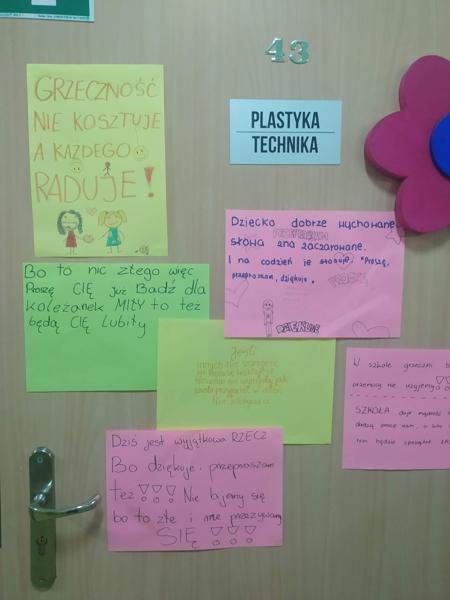 43
PLASTYKA
TECHNIKA
GRZECZNOŚĆ
NIE KOSZTUJE
A KAŻDEGO
RADUJE!
Dziecko dobrze wychowane
słowa zna zaczarowane.
I na codzień je stosuje, "Proszę,
przepraszam, dziękuję.
PRZEPRASZAM
PROSZĘ
DZIĘKUJĘ
Bo to nic złego więc
Proszę CIĘ już Badź dla
koleżanek MIŁY to też
będą CIĘ LUBIŁY
Jeśli
innych nie szanujesz
Nie
W szkole grzeczni
przemocy nie
SZKOŁA daje mądrość
Dziś jest wyjątkowa RZECZ
Bo dziękuje i przepraszam
też !!! Nie bijemy się
bo to złe i nie przezywamy
SIĘ !!!